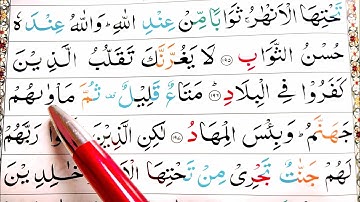 تَحْتِهَا الْاَنْهٰرُ ثَوَابًا مِّنْ عِنْدِ اللّٰهِ وَاللّٰهُ عِنْدَهٗ
حُسْنُ الثَّوَابِ ﴿۱۹۵﴾ لَا يَغُرَّنَّكَ تَقَلُّبُ الَّذِيْنَ
كَفَرُوْا فِي الْبِلَادِ ﴿۱۹۶﴾ مَتَاعٌ قَلِيْلٌ ثُمَّ مَاْوٰىهُمْ
جَهَنَّمُ وَبِئْسَ الْمِهَادُ ﴿۱۹۷﴾ لٰكِنِ الَّذِيْنَ رَبَّهُمْ
لَهُمْ جَنّٰتٌ تَجْرِيْ مِنْ تَحْتِهَا الْاَنْهٰرُ خٰلِدِيْنَ